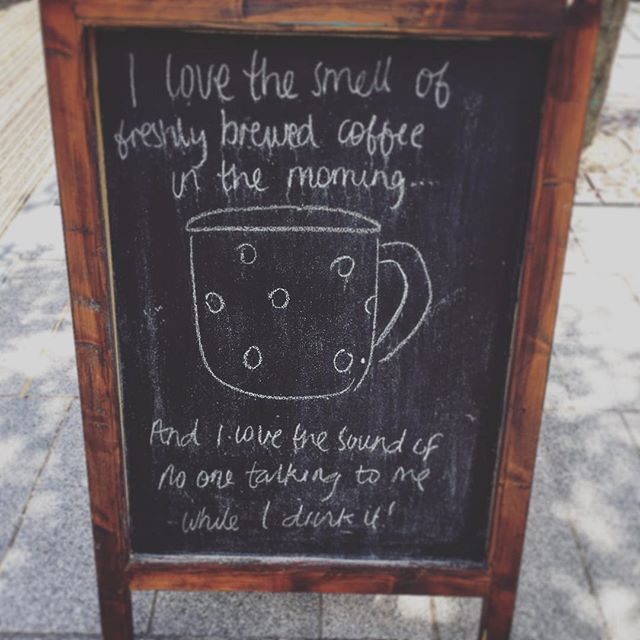 I love the smell of
freshly brewed coffee
in the morning...
And I love the sound of
no one talking to me
while I drink it!